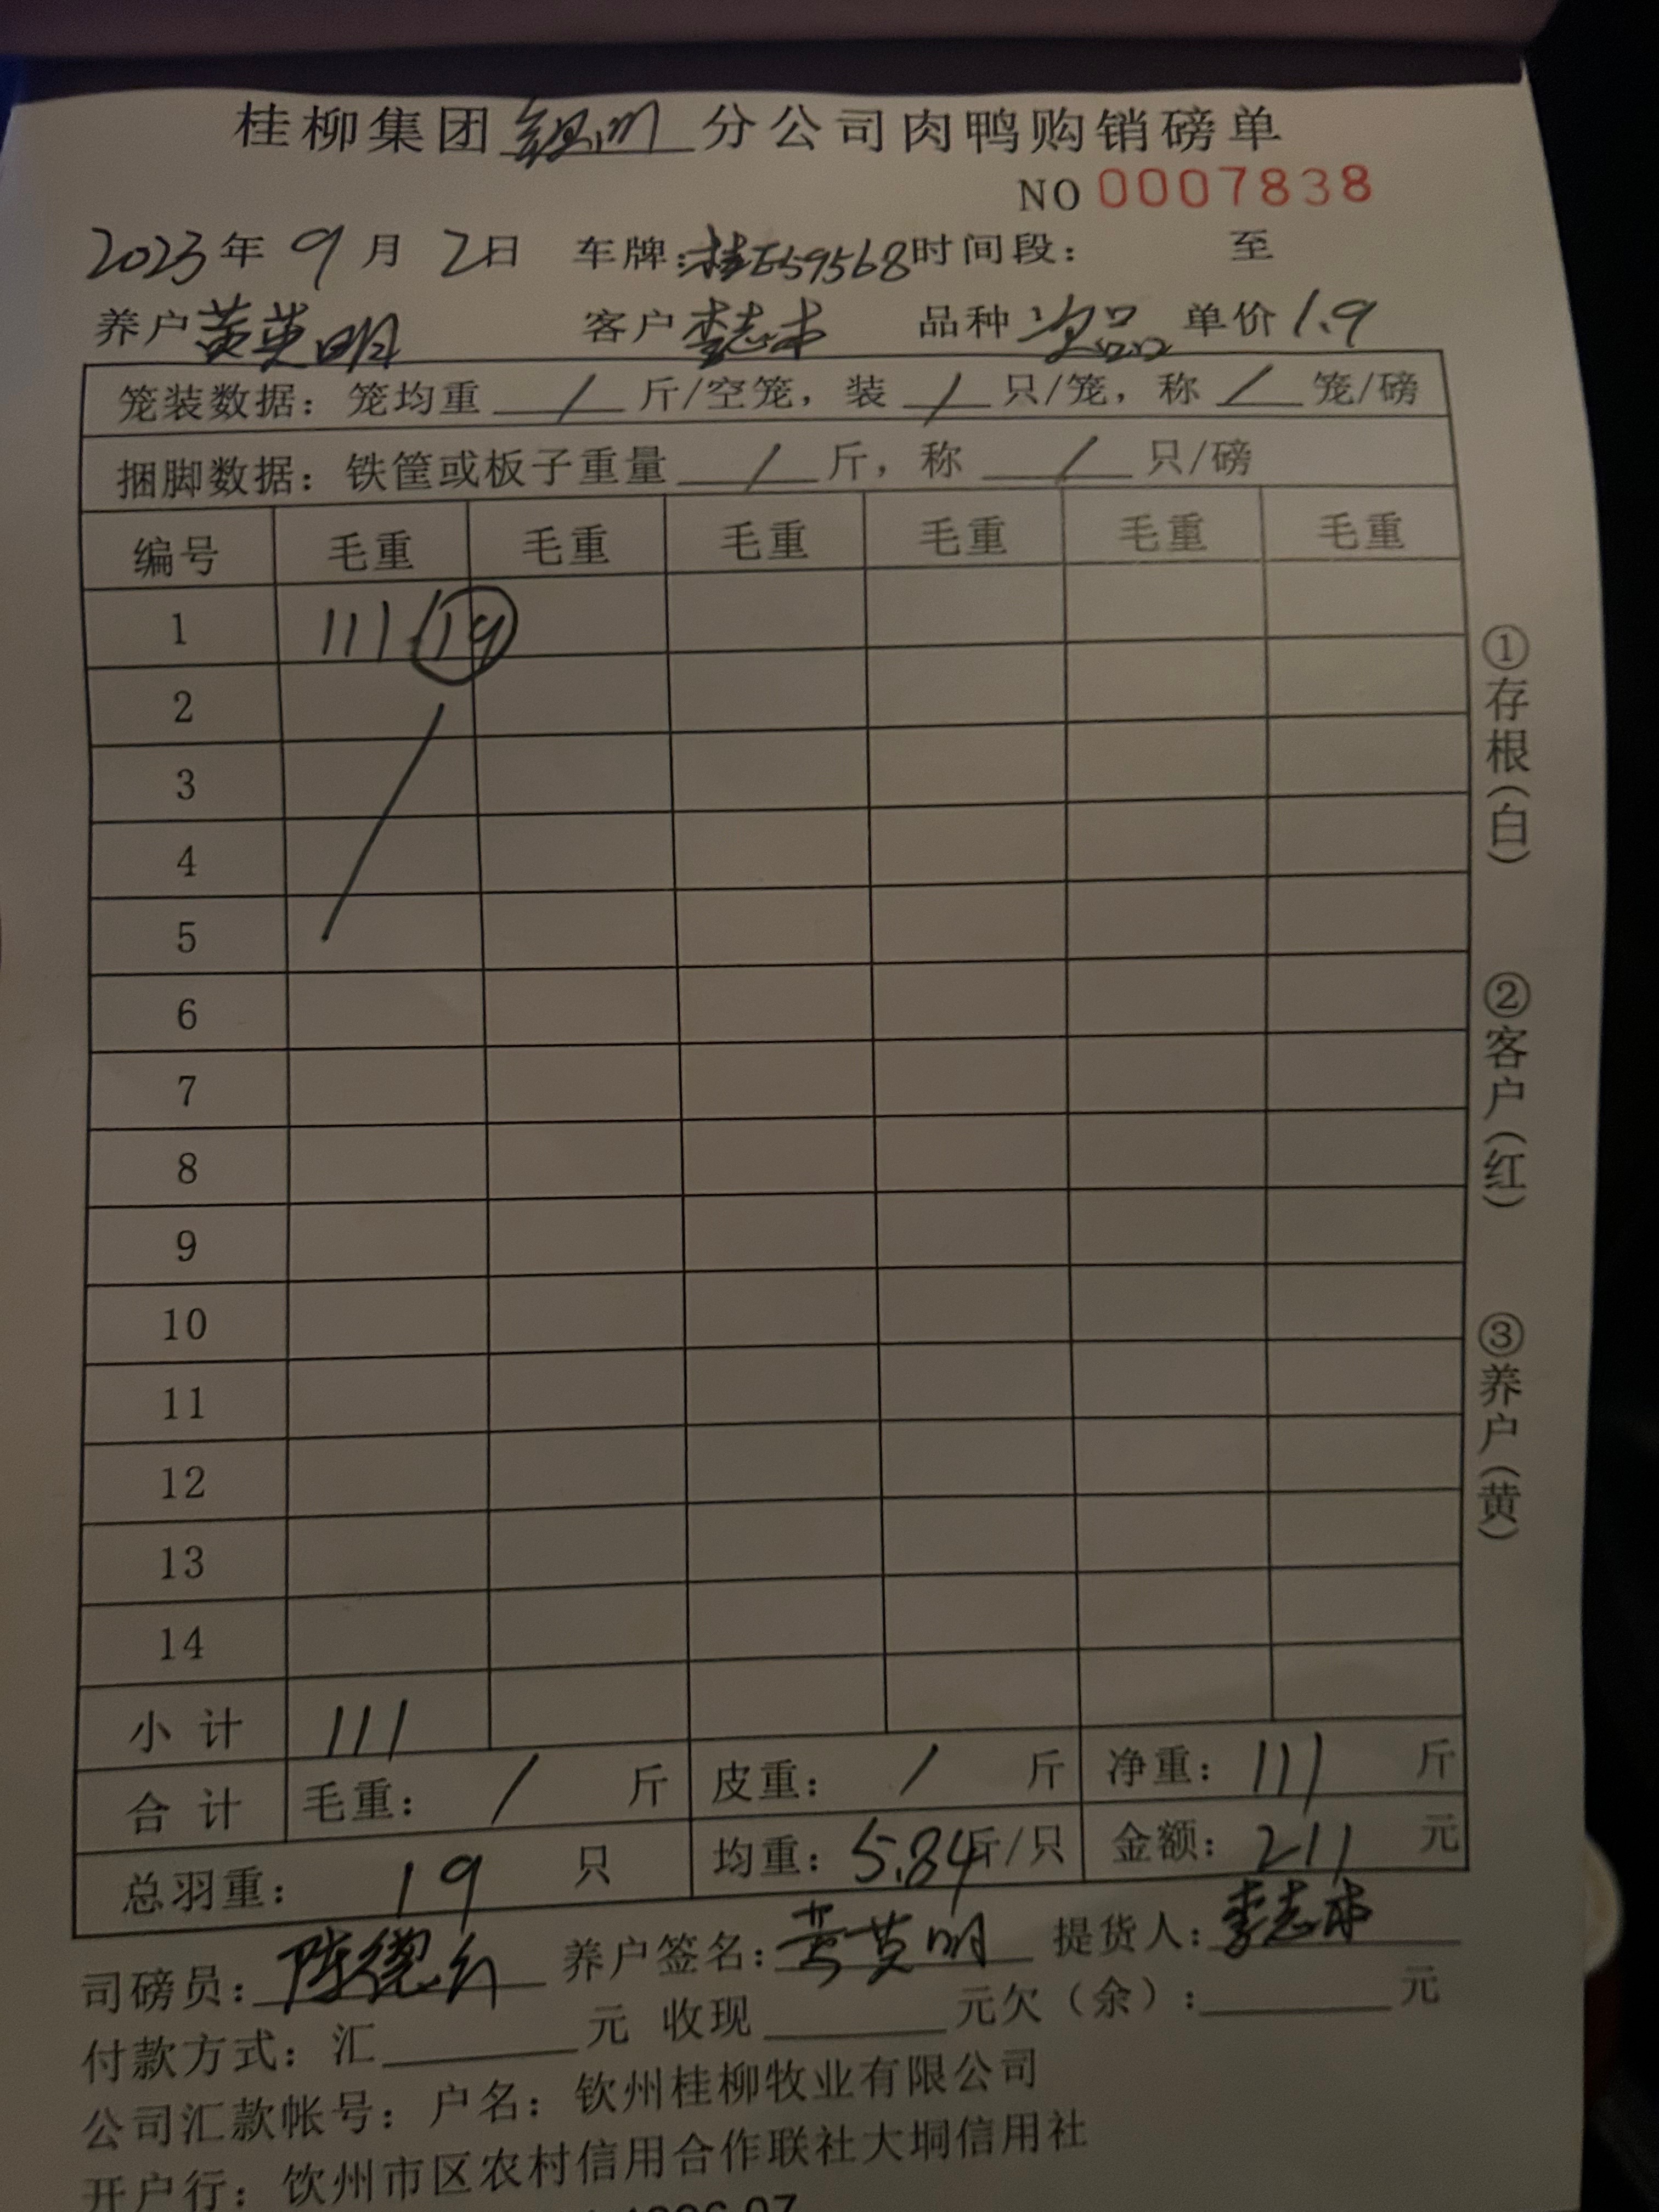 桂柳集团钦州分公司肉鸭购销磅单
NO 0007838
2023年 9月 2日 车牌:桂E59568时间段: 至
养户黄英明 客户李志 品种次品 单价1.9
笼装数据:笼均重 / 斤/空笼,装 / 只/笼,称 / 笼/磅
捆脚数据:铁筐或板子重量 / 斤,称 / 只/磅
编号 毛重 毛重 毛重 毛重 毛重 毛重
1 111 19
2
3
4
5
6
7
8
9
10
11
12
13
14
小计 111
合计 毛重: / 斤 皮重: / 斤 净重:111 斤
总羽重: 19 只 均重:5.84斤/只 金额:211 元
司磅员:陈德 养户签名:黄英明 提货人:李志
付款方式:汇 元 收现 元欠(余): 元
公司汇款帐号:户名:钦州桂柳牧业有限公司
开户行:饮州市区农村信用合作联社大垌信用社
①存根(白)
②客户(红)
③养户(黄)